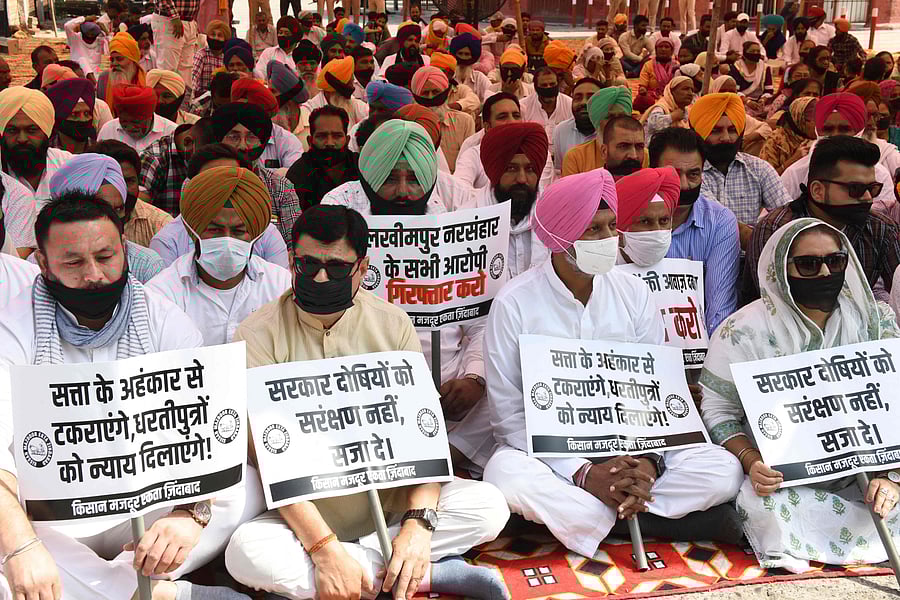 लखीमपुर नरसंहार
के सभी आरोपी
गिरफ्तार करो
किसान मजदूर एकता ज़िंदाबाद
करो
सत्ता के अहंकार से
टकराएंगे,धरतीपुत्रों
को न्याय दिलाएंगे!
किसान मजदूर एकता ज़िंदाबाद
सरकार दोषियों को
संरक्षण नहीं,
सजा दे।
किसान मजदूर एकता ज़िंदाबाद
सत्ता के अहंकार से
टकराएंगे,धरतीपुत्रों
को न्याय दिलाएंगे!
किसान मजदूर एकता ज़िंदाबाद
सरकार दोषियों को
संरक्षण नहीं,
सजा दे।
किसान मजदूर एकता ज़िंदाबाद